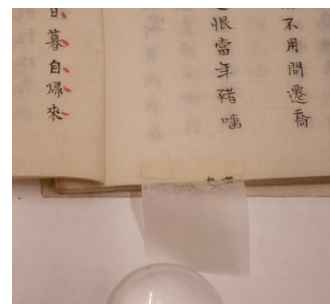 不用問遷喬
恨當年豬
日暮自歸來